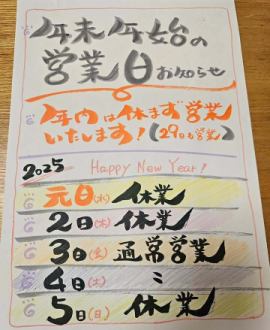 年末年始の
営業日お知らせ
年内は休まず営業
いたします!(29日も営業)
2025 Happy New Year!
元日(水)休業
2日(木)休業
3日(金)通常営業
4日(土) 〃
5日(日)休業